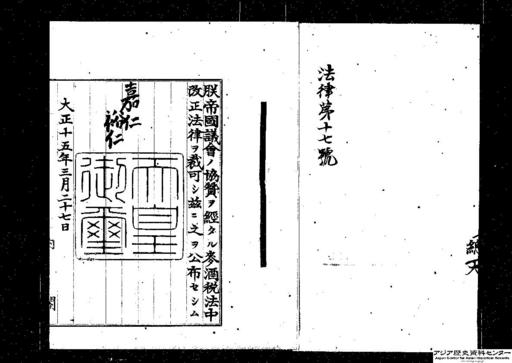 法律第十七號
朕帝國議會ノ協贊ヲ經タル麥酒稅法中
改正法律ヲ裁可シ茲ニ之ヲ公布セシム
嘉仁
裕仁
天皇
御璽
大正十五年三月二十七日
内閣
アジア歴史資料センター
Japan Center for Asian Historical Records